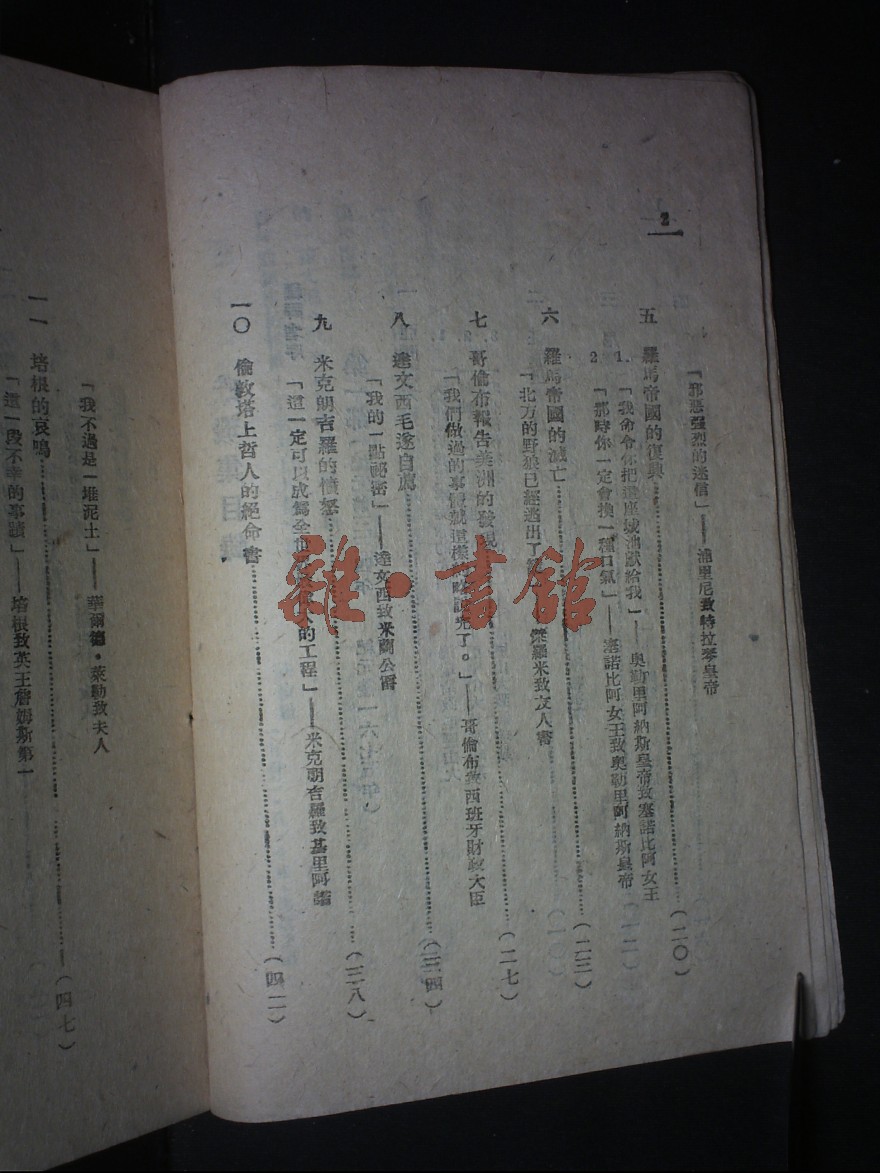 2
「邪惡強烈的迷信」——浦里尼致特拉琴皇帝
五 羅馬帝國的復興……(二〇)
1.「我命令你把這座城池獻給我」——奧勒里阿納斯皇帝致塞諾比阿女王
2 「那時你一定會換一種口氣」——塞諾比阿女王致奧勒里阿納斯皇帝
六 羅馬帝國的滅亡……(二三)
「北方的野狼已經逃出了 傑羅米致友人書
七 哥倫布報告美洲的發現……(二七)
「我們做過的事情就這樣 完了。」——哥倫布致西班牙財政大臣
八 達文西毛遂自薦……(三四)
「我的一點祕密」——達文西致米蘭公爵
九 米克朗吉羅的憤怒……(三八)
「這一定可以成為全世 的工程」——米克朗吉羅致基里阿諾
一〇 倫敦塔上哲人的絕命書……(四二)
「我不過是一堆泥土」——華爾德·萊勒致夫人
一一 培根的哀鳴……(四七)
「這一段不幸的事蹟」——培根致英王詹姆斯第一
雜·書館